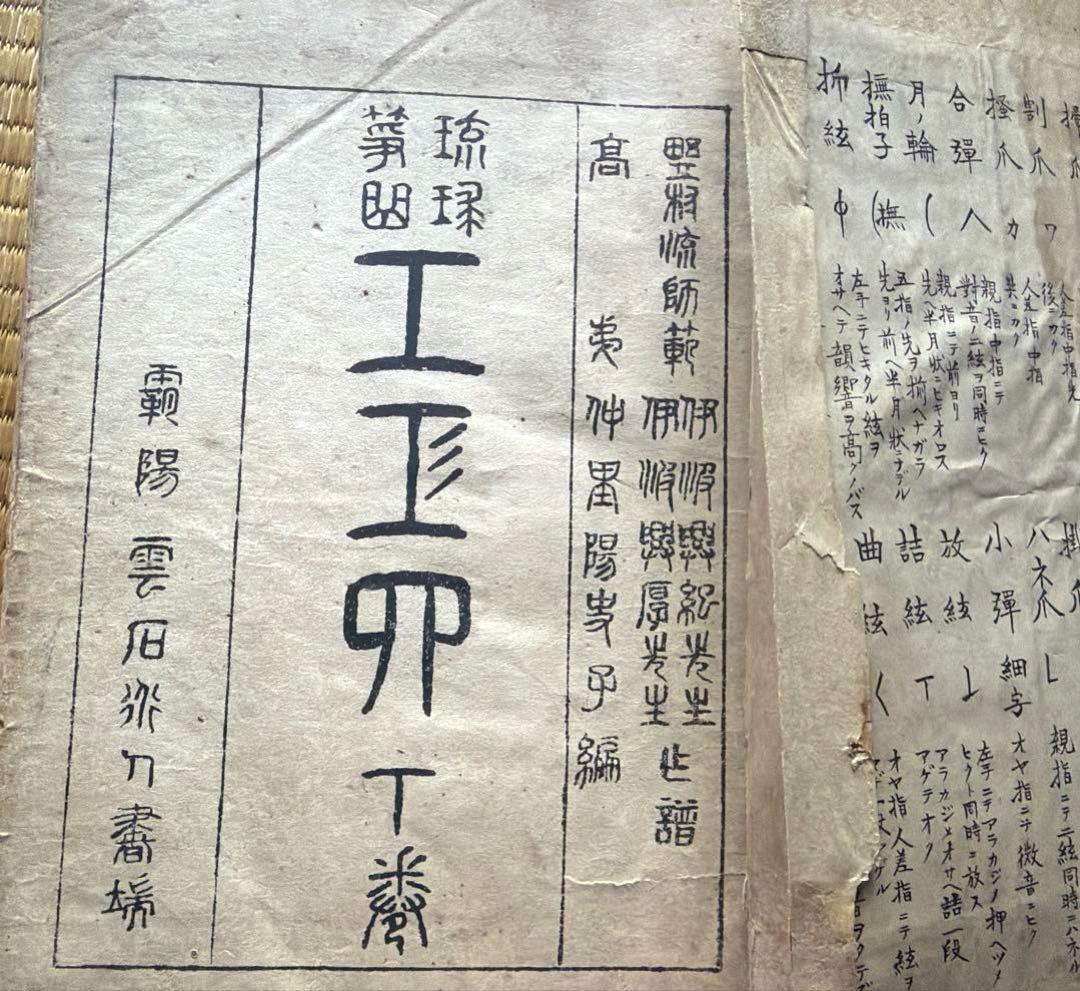 割爪 ワ
人差指中指先
後ニカク
掻爪 カ
人差指中指
共ニカク
合彈 ヘ
親指中指ニテ
對音ノ二絃ヲ同時ニヒク
月ノ輪 (
親指ニテ前ヨリ
先ヘ半月狀ニヒキオロス
撫拍子 (撫
五指ノ先ヲ揃ヘナガラ
先ヨリ前ヘ半月狀ニナデル
押絃 中
左手ニテヒキタル絃ヲ
オサヘテ韻響ヲ高クノバス
掛爪
ハネ爪 L
親指ニテ二絃同時ニハネル
小彈 細字
オヤ指ニテ微音ニヒク
放絃
左手ニテアラカジメ押ヘツメ
ヒクト同時ニ放ス
詰絃 T
アラカジメオサヘ詰一段
アゲテオク
曲絃 く
オヤ指人差指ニテ絃ヲ
野村流師範
伊波興紹先生
伊波興厚先生
譜
高 仲里陽史子編
琉球
箏曲
工工四 下巻
覇陽 雲石 刀書端